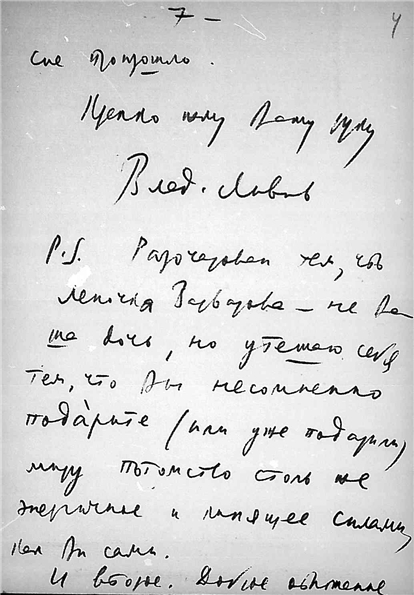 7 –
4
сие прошло.
Крепко жму Вашу руку
Влад. Львов
P.S. Разочарован тем, что
Леночка Варварова – не Ва
ша дочь, но утешаю себя
тем, что Вы несомненно
подарите (или уже подарили)
миру потомство столь же
энергичное и кипящее силами,
как Вы сами.
И второе. Доброе отношение